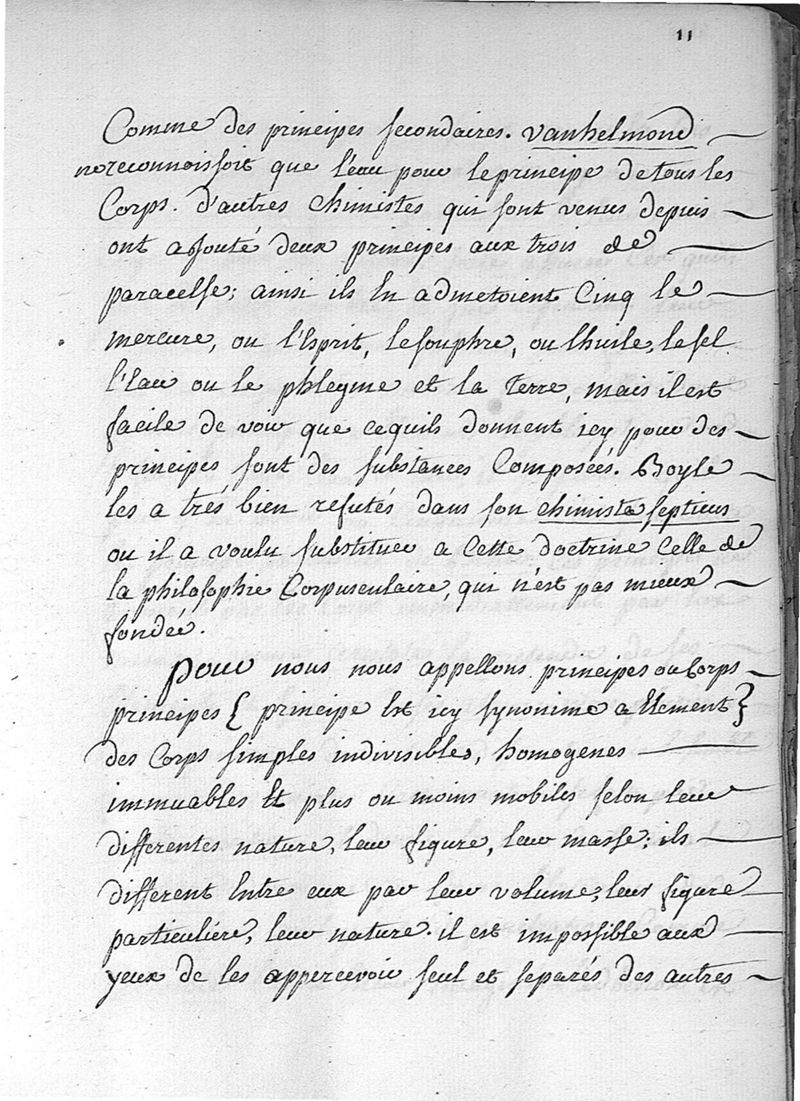 11
Comme des principes secondaires. Vanhelmond
ne reconnoissoit que l'eau pour le principe de tous les
Corps. D'autres chimistes qui sont venus depuis
ont ajouté deux principes aux trois de
paracelse; ainsi ils En admetoient Cinq le
mercure, ou l'Esprit, le souphre, ou l'huile, le sel
l'Eau ou le phlegme et la Terre, mais il est
facile de voir que cequils donnent icy pour des
principes sont des substances Composées. Boyle
les a trés bien refutés dans son chimista septicus
ou il a voulu substituer a Cette doctrine Celle de
la philosophie Corpusculaire, qui n'est pas mieux
fondée.
Pour nous nous appellons principes ou Corps
principes { principe Est icy synonime a Element }
des Corps simples indivisibles, homogenes
immuables Et plus ou moins mobiles selon leur
differentes nature, leur figure, leur masse; ils
different Entre eux par leur volume, leur figure
particuliére, leur nature. il est impossible aux
yeux de les appercevoir seul et separés des autres